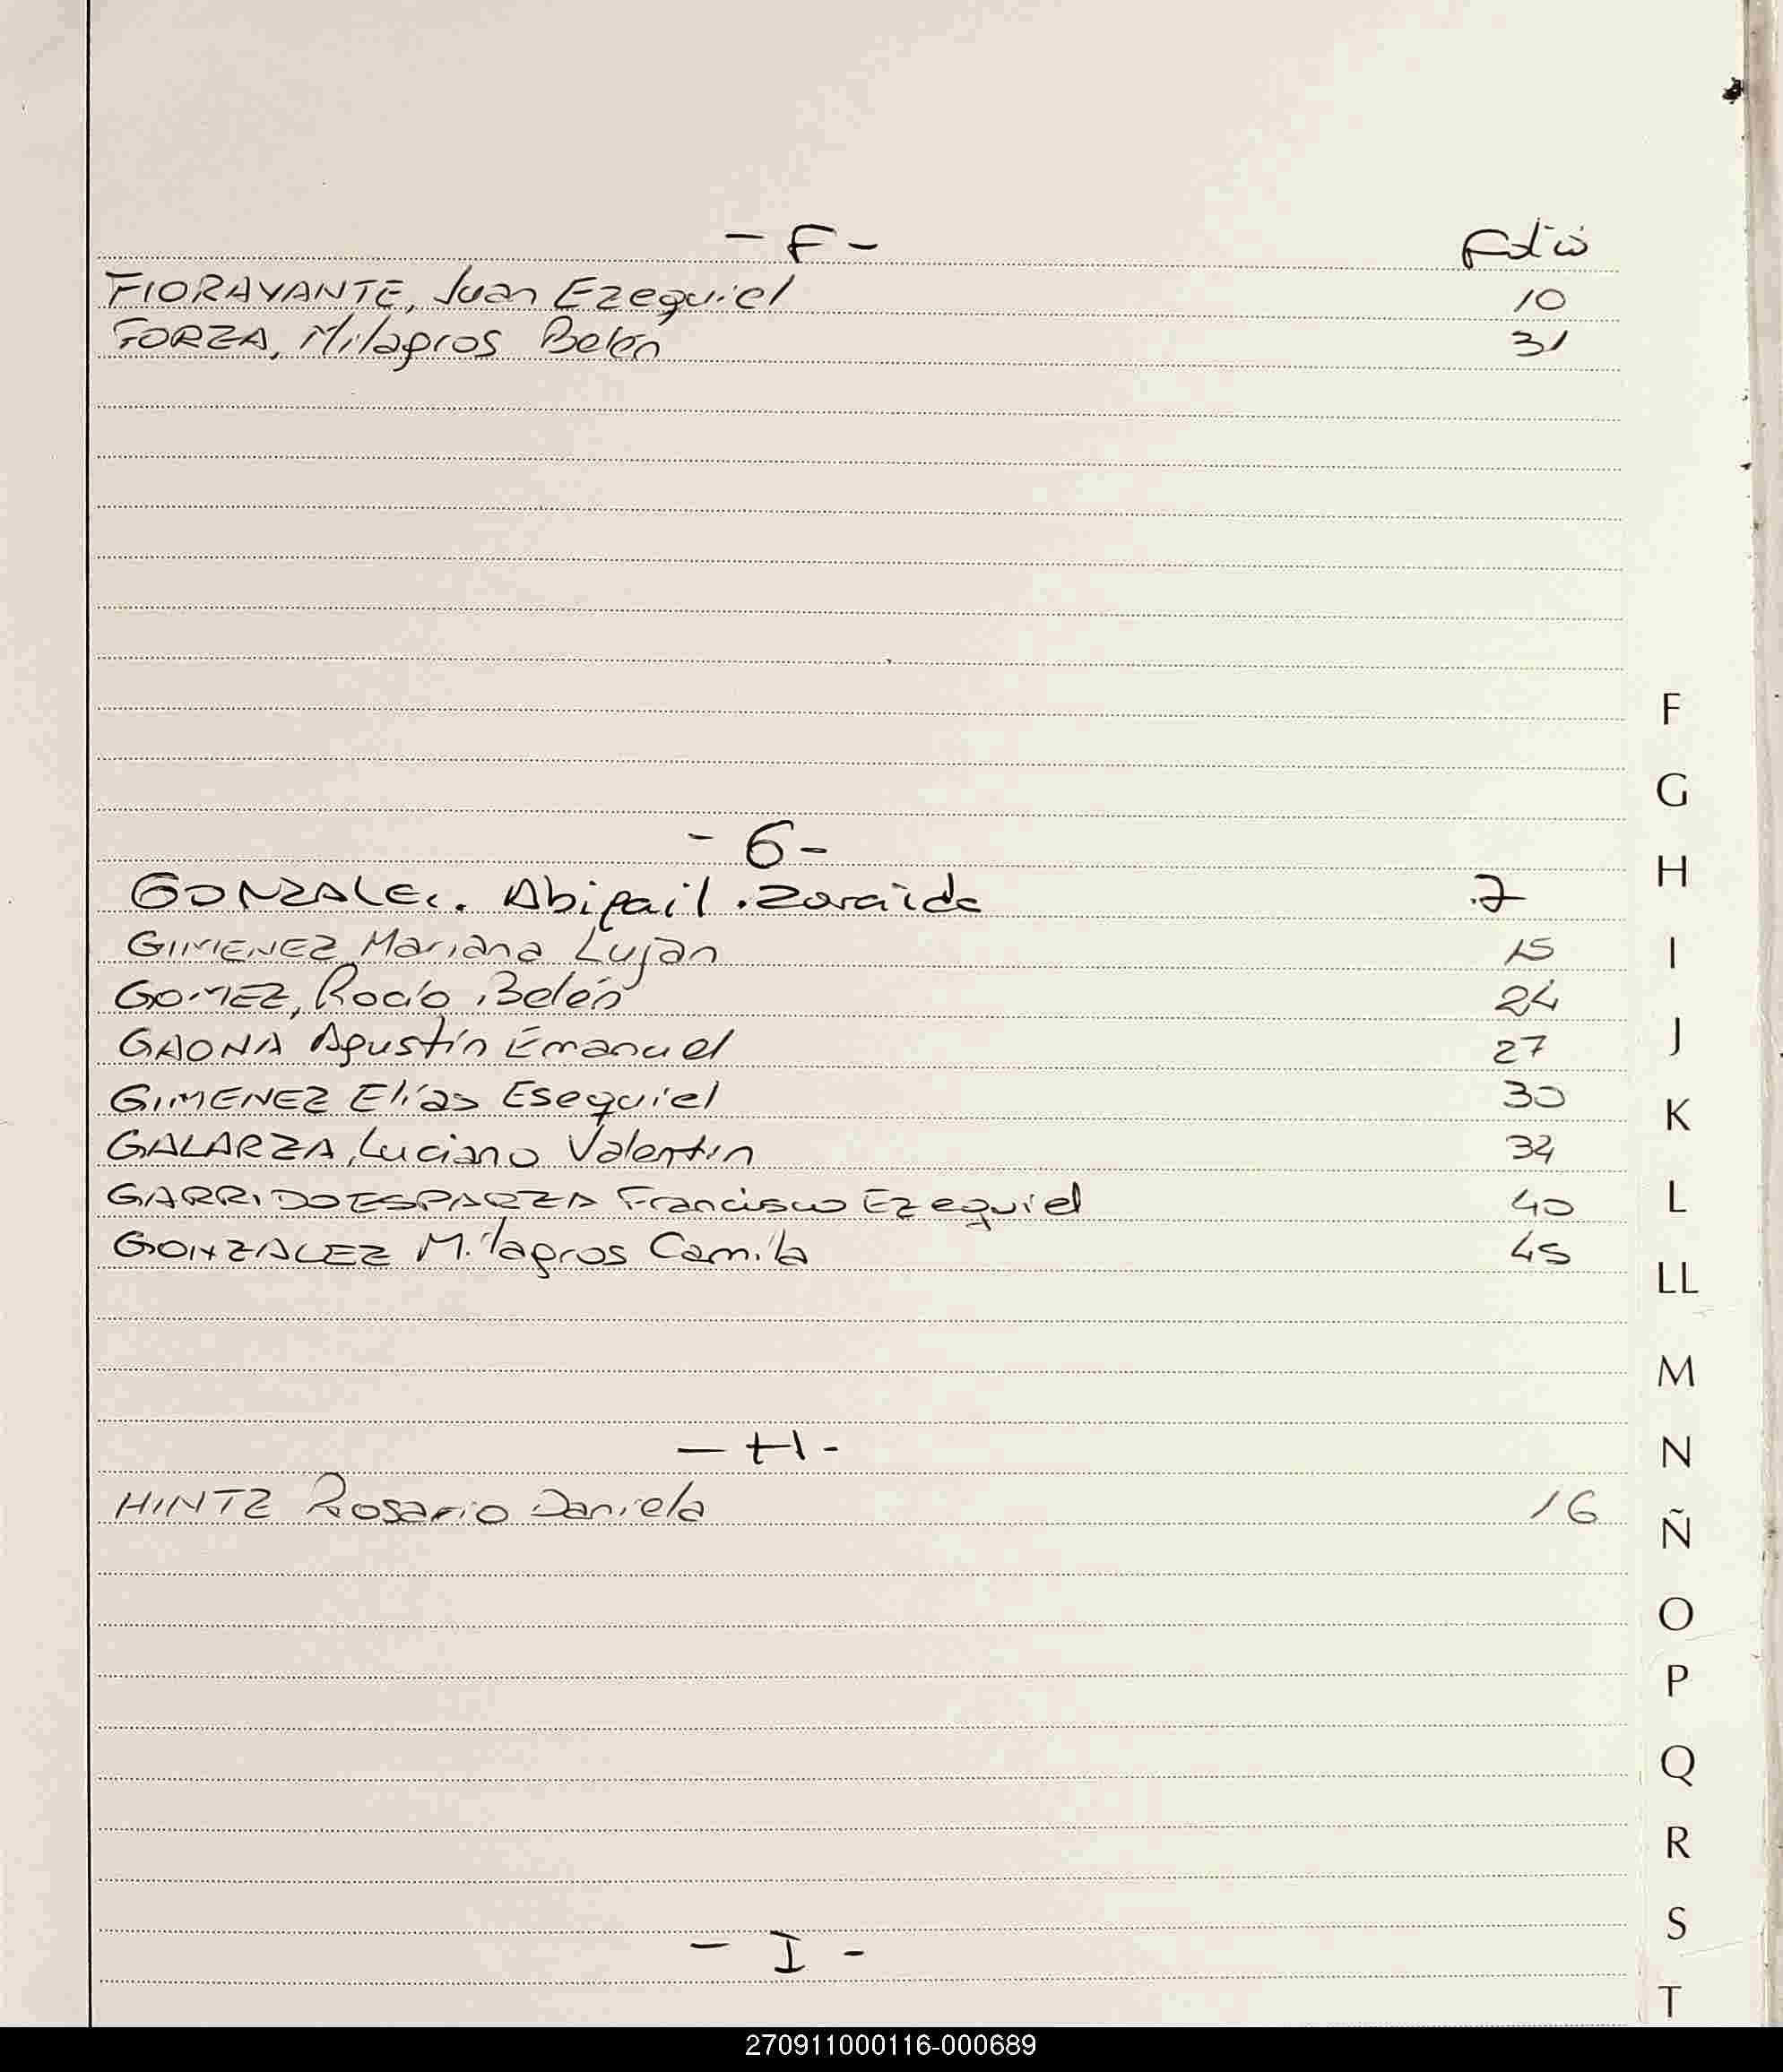 - F - Folio
FIORAVANTE, Juan Ezequiel 10
FORZA, Milagros Belén 31
- G -
GONZALEZ. Abigail Zoraida 7
GIMENEZ Mariana Luján 15
GOMEZ, Rocío Belén 24
GAONA Agustín Emanuel 27
GIMENEZ Elías Esequiel 30
GALARZA, Luciano Valentín 34
GARRIDO ESPARZA Francisco Ezequiel 40
GONZALEZ Milagros Camila 45
- H -
HINTZ Rosario Daniela 16
- I -
F
G
H
I
J
K
L
LL
M
N
Ñ
O
P
Q
R
S
T
270911000116-000689